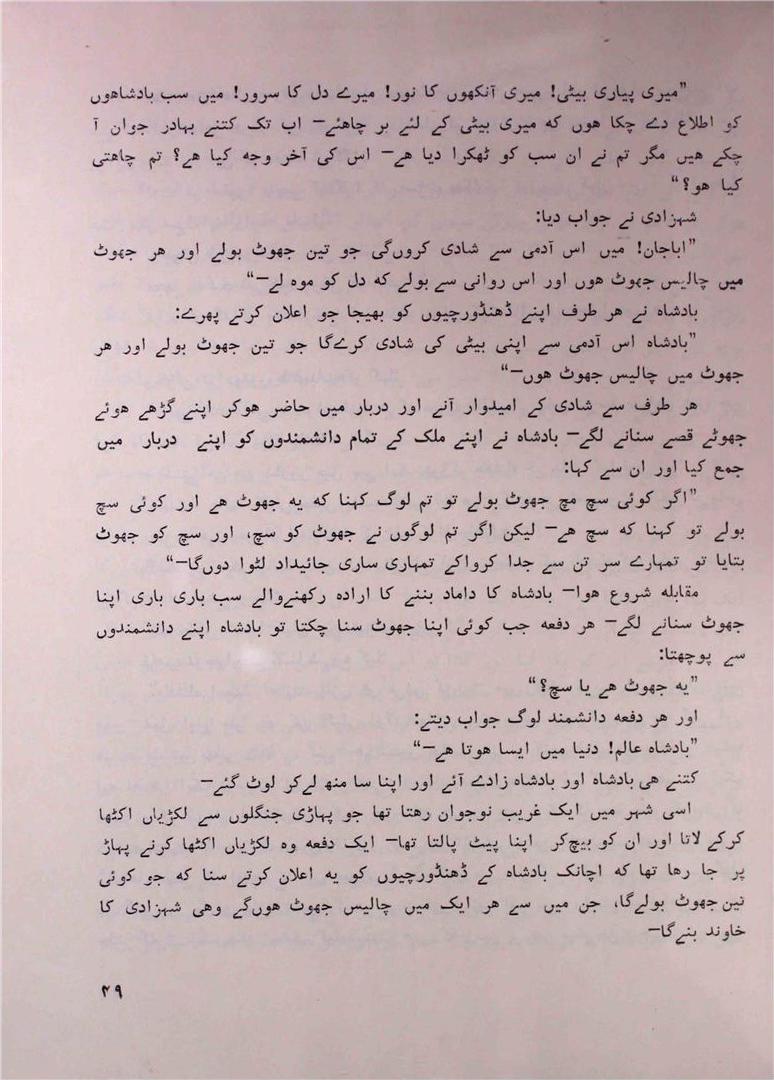 ”میری پیاری بیٹی! میری آنکھوں کا نور! میرے دل کا سرور! میں سب بادشاھوں
کو اطلاع دے چکا ھوں که میری بیٹی کے لئے بر چاھئے— اب تک کتنے بہادر جوان آ
چکے ھیں مگر تم نے ان سب کو ٹھکرا دیا ھے— اس کی آخر وجه کیا ھے؟ تم چاھتی
کیا ھو؟“
شہزادی نے جواب دیا:
”اباجان! میں اس آدمی سے شادی کروں‌گی جو تین جھوٹ بولے اور ھر جھوٹ
میں چالیس جھوٹ ھوں اور اس روانی سے بولے که دل کو موہ لے—“
بادشاہ نے ھر طرف اپنے ڈھنڈورچیوں کو بھیجا جو اعلان کرتے پھرے:
”بادشاہ اس آدمی سے اپنی بیٹی کی شادی کرےگا جو تین جھوٹ بولے اور ھر
جھوٹ میں چالیس جھوٹ ھوں—“
ھر طرف سے شادی کے امیدوار آنے اور دربار میں حاضر ھوکر اپنے گڑھے ھوئے
جھوٹے قصے سنانے لگے— بادشاہ نے اپنے ملک کے تمام دانشمندوں کو اپنے دربار میں
جمع کیا اور ان سے کہا:
”اگر کوئی سچ مچ جھوٹ بولے تو تم لوگ کہنا که یه جھوٹ ھے اور کوئی سچ
بولے تو کہنا که سچ ھے— لیکن اگر تم لوگوں نے جھوٹ کو سچ، اور سچ کو جھوٹ
بتایا تو تمہارے سر تن سے جدا کرواکے تمہاری ساری جائیداد لٹوا دوں‌گا—“
مقابله شروع ھوا— بادشاہ کا داماد بننے کا ارادہ رکھنےوالے سب باری باری اپنا
جھوٹ سنانے لگے— ھر دفعه جب کوئی اپنا جھوٹ سنا چکتا تو بادشاہ اپنے دانشمندوں
سے پوچھتا:
”یه جھوٹ ھے یا سچ؟“
اور ھر دفعه دانشمند لوگ جواب دیتے:
”بادشاہ عالم! دنیا میں ایسا ھوتا ھے—“
کتنے ھی بادشاہ اور بادشاہ زادے آئے اور اپنا سا منھ لےکر لوٹ گئے—
اسی شہر میں ایک غریب نوجوان رھتا تھا جو پہاڑی جنگلوں سے لکڑیاں اکٹھا
کرکے لاتا اور ان کو بیچ‌کر اپنا پیٹ پالتا تھا— ایک دفعه وہ لکڑیاں اکٹھا کرنے پہاڑ
پر جا رھا تھا که اچانک بادشاہ کے ڈھنڈورچیوں کو یه اعلان کرتے سنا که جو کوئی
تین جھوٹ بولےگا، جن میں سے ھر ایک میں چالیس جھوٹ ھوں‌گے وھی شہزادی کا
خاوند بنےگا—
۴۹